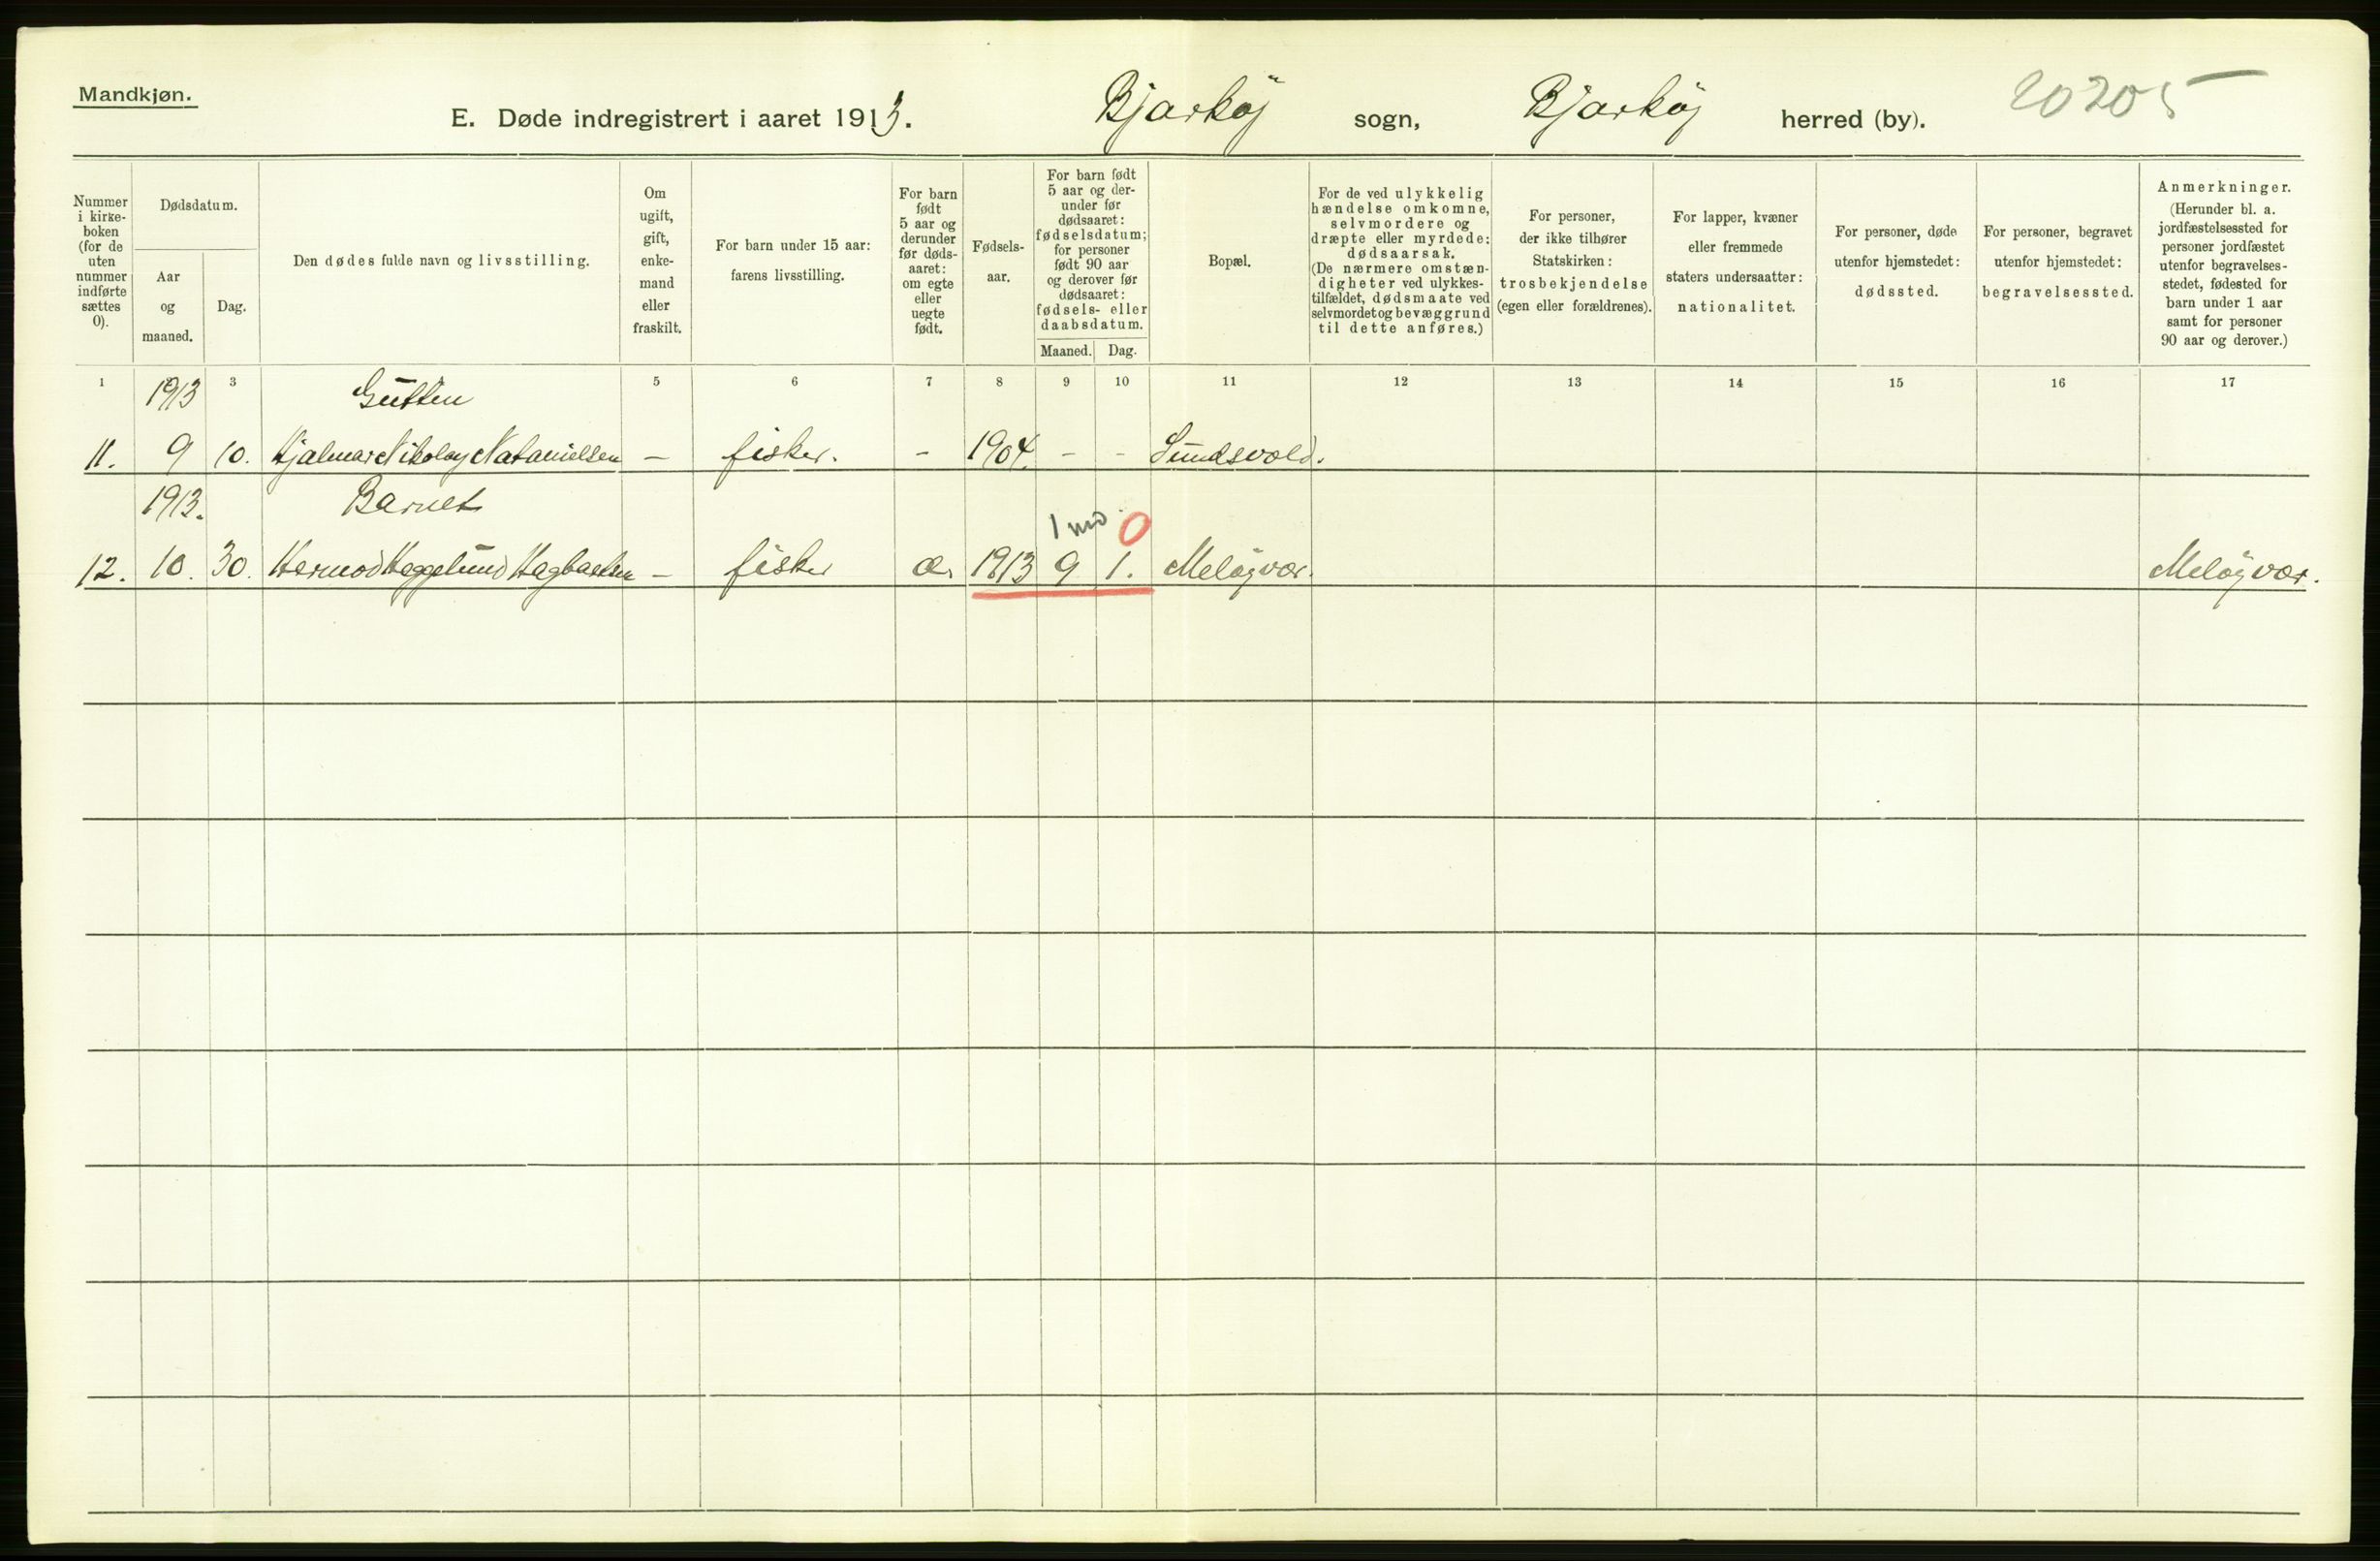 Mandkjøn.
E. Døde indregistrert i aaret 1913. Bjarköj sogn, Bjarköj herred (by). 20205
Nummer i kirke- boken (for de uten nummer indførte sættes 0).
Dødsdatum.
Aar og maaned.
Dag.
Den dødes fulde navn og livsstilling.
Om ugift, gift, enke- mand eller fraskilt.
For barn under 15 aar: farens livsstilling.
For barn født 5 aar og derunder før døds- aaret: om egte eller uegte født.
Fødsels- aar.
For barn født 5 aar og der- under før dødsaaret: fødselsdatum; for personer født 90 aar og derover før dødsaaret: fødsels- eller daabsdatum.
Maaned. Dag.
Bopæl.
For de ved ulykkelig hændelse omkomne, selvmordere og dræpte eller myrdede: dødsaarsak. (De nærmere omstæn- digheter ved ulykkes- tilfældet, dødsmaate ved selvmordet og bevæggrund til dette anføres.)
For personer, der ikke tilhører Statskirken: trosbekjendelse (egen eller forældrenes).
For lapper, kvæner eller fremmede staters undersaatter: nationalitet.
For personer, døde utenfor hjemstedet: dødssted.
For personer, begravet utenfor hjemstedet: begravelsessted.
Anmerkninger. (Herunder bl. a. jordfæstelsessted for personer jordfæstet utenfor begravelses- stedet, fødested for barn under 1 aar samt for personer 90 aar og derover.)
1 3 5 6 7 8 9 10 11 12 13 14 15 16 17
1913 Gutten
11. 9 10. Hjalmar Nikolay Natanielsen – fisker. – 1904. – – Sundsvold.
1913. Barnet 1 md 0
12. 10. 30. Hermod Heggelund Hagbartsen – fisker æ. 1913 9 1. Melöyvær. Melöyvær.